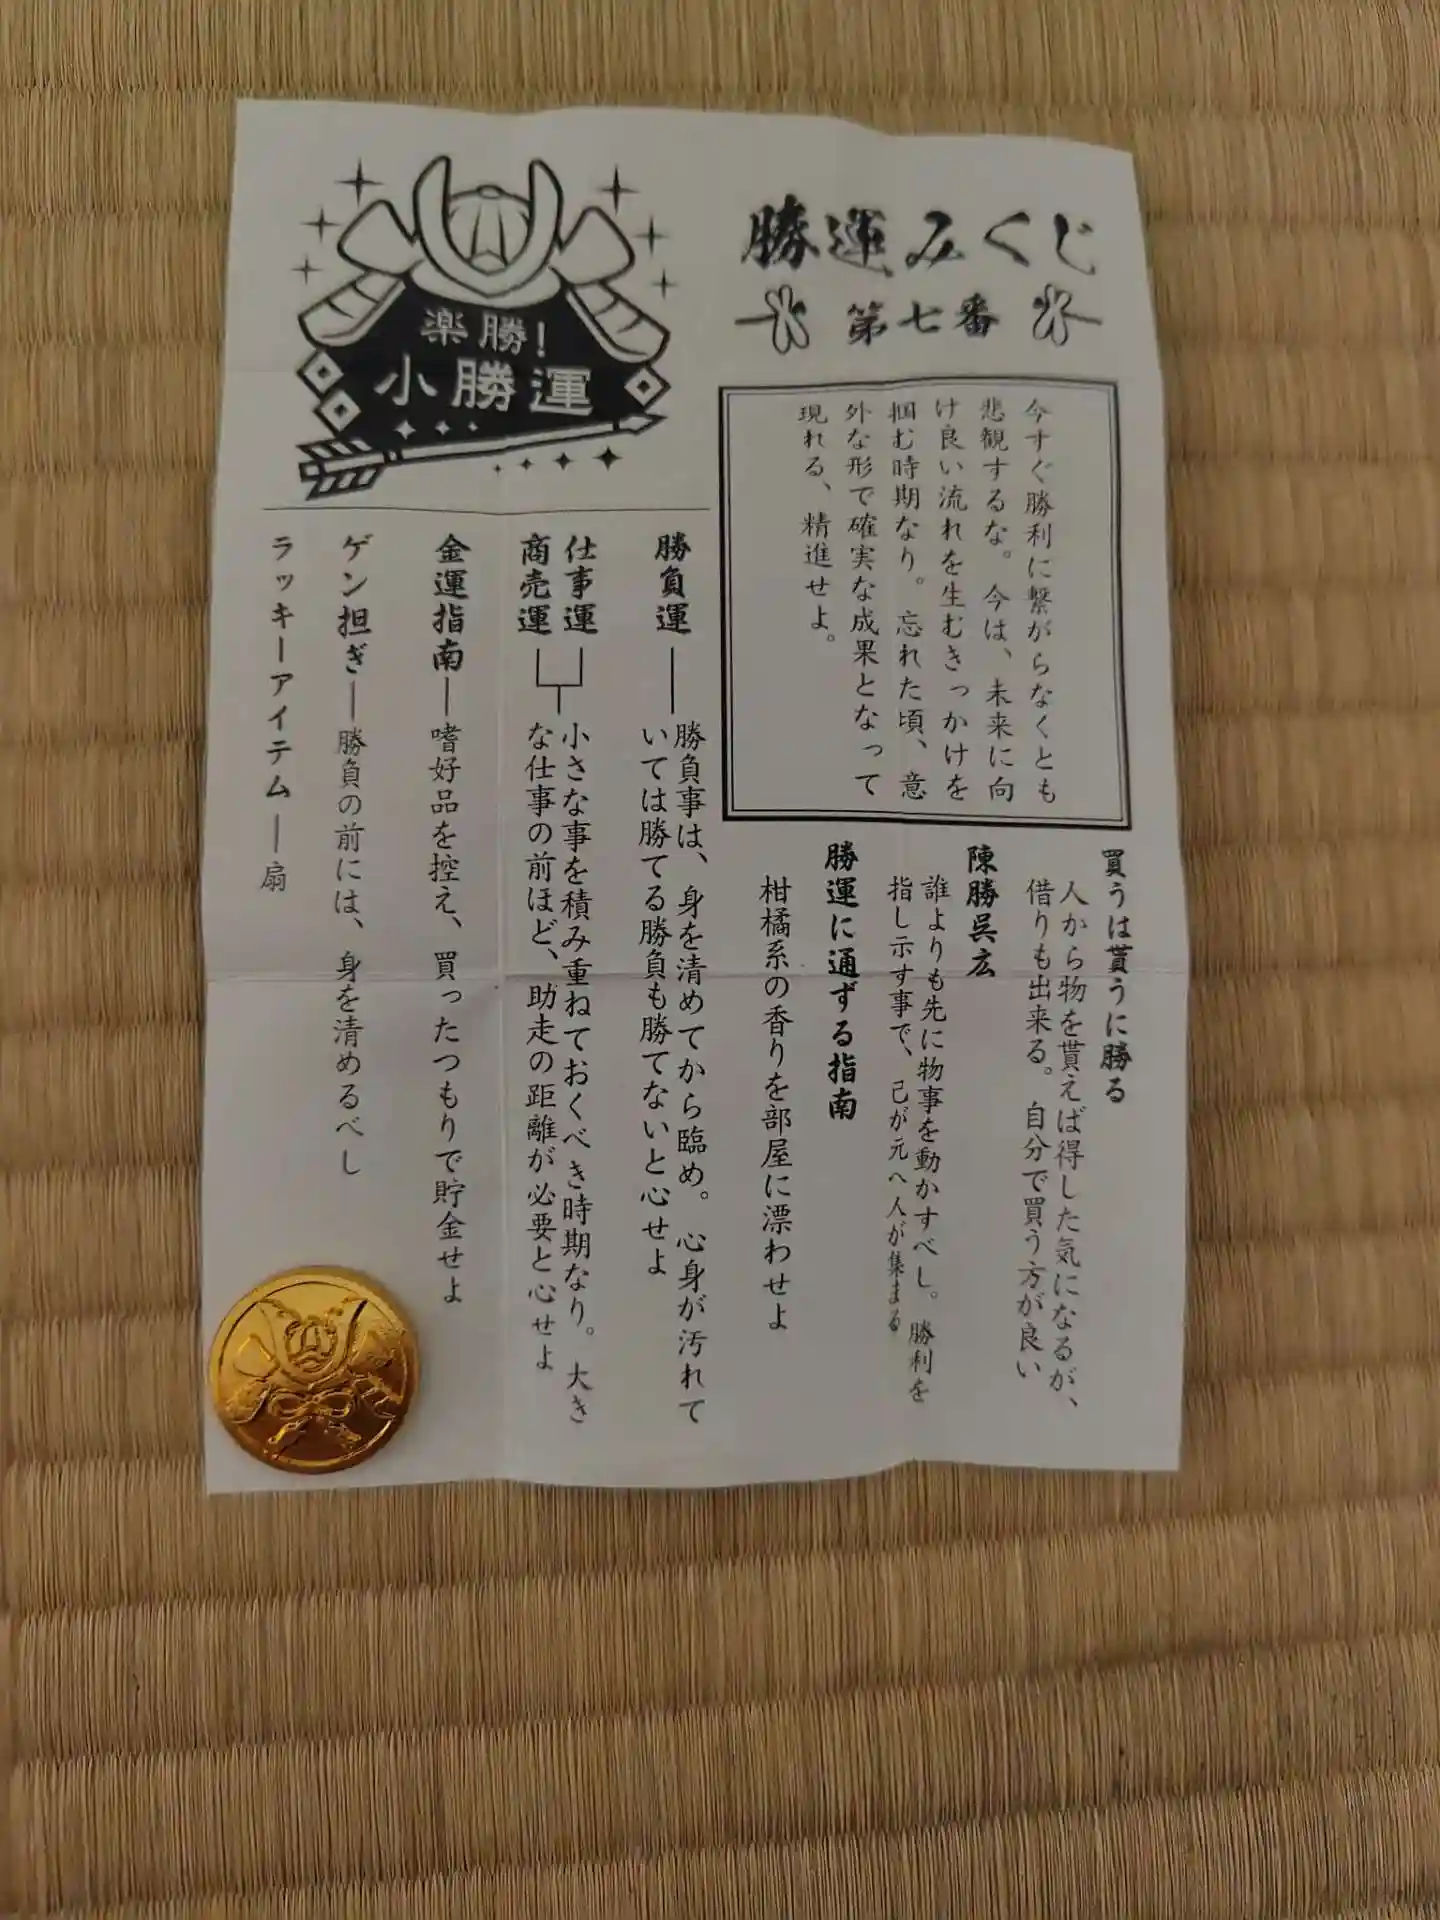 勝運みくじ
第七番
今すぐ勝利に繋がらなくとも
悲観するな。今は、未来に向
け良い流れを生むきっかけを
掴む時期なり。忘れた頃、意
外な形で確実な成果となって
現れる、精進せよ。
買うは貰うに勝る
人から物を貰えば得した気になるが、
借りも出来る。自分で買う方が良い
陳勝呉広
誰よりも先に物事を動かすべし。勝利を
指し示す事で、己が元へ人が集まる
勝運に通ずる指南
柑橘系の香りを部屋に漂わせよ
楽勝!
小勝運
勝負運
勝負事は、身を清めてから臨め。心身が汚れて
いては勝てる勝負も勝てないと心せよ
仕事運
商売運
小さな事を積み重ねておくべき時期なり。大き
な仕事の前ほど、助走の距離が必要と心せよ
金運指南―嗜好品を控え、買ったつもりで貯金せよ
ゲン担ぎ―勝負の前には、身を清めるべし
ラッキーアイテム―扇